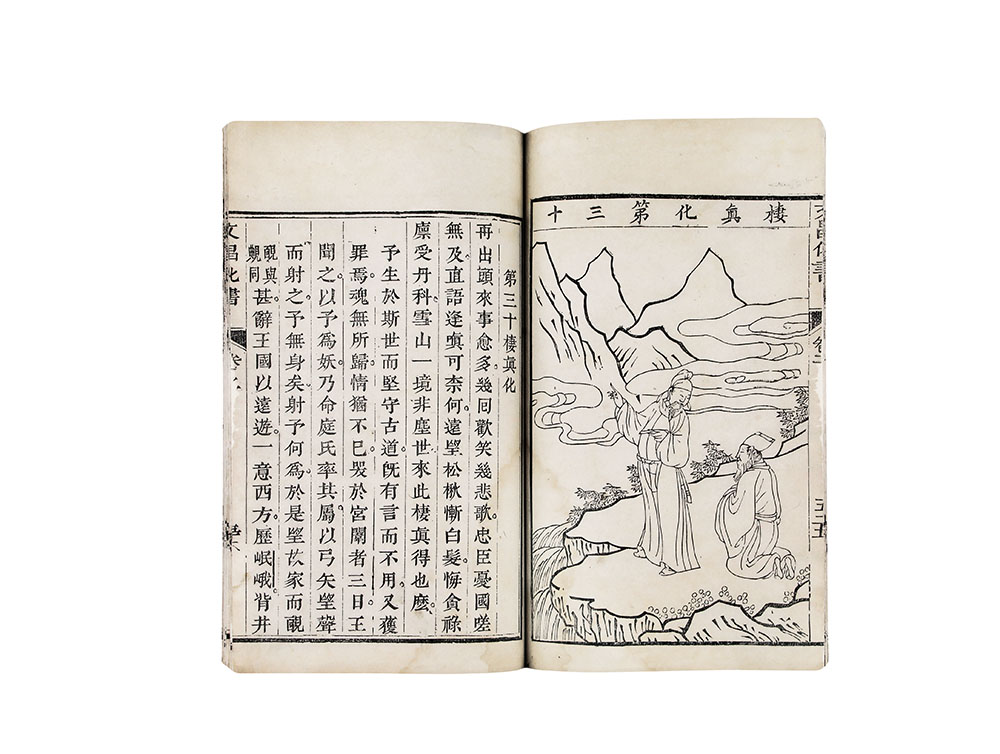 棲眞化第三十
第三十棲眞化
再出頭來事愈多。幾囘歡笑幾悲歌。忠臣憂國嗟
無及。直語逢嗔可柰何。遠望松楸慚白髮。悔貪祿
廩受丹科。雪山一境非塵世。來此棲眞得也麽。
予生於斯世而堅守古道。旣有言而不用。又獲
罪焉。魂無所歸。情猶不已。哭於宮闈者三日。王
聞之以予爲妖。乃命庭氏率其屬。以弓矢望聲
而射之。予無身矣。射予何爲。於是望故家而
甚。辭王國以遠遊。一意西方。歷岷峨。背井
文昌化書